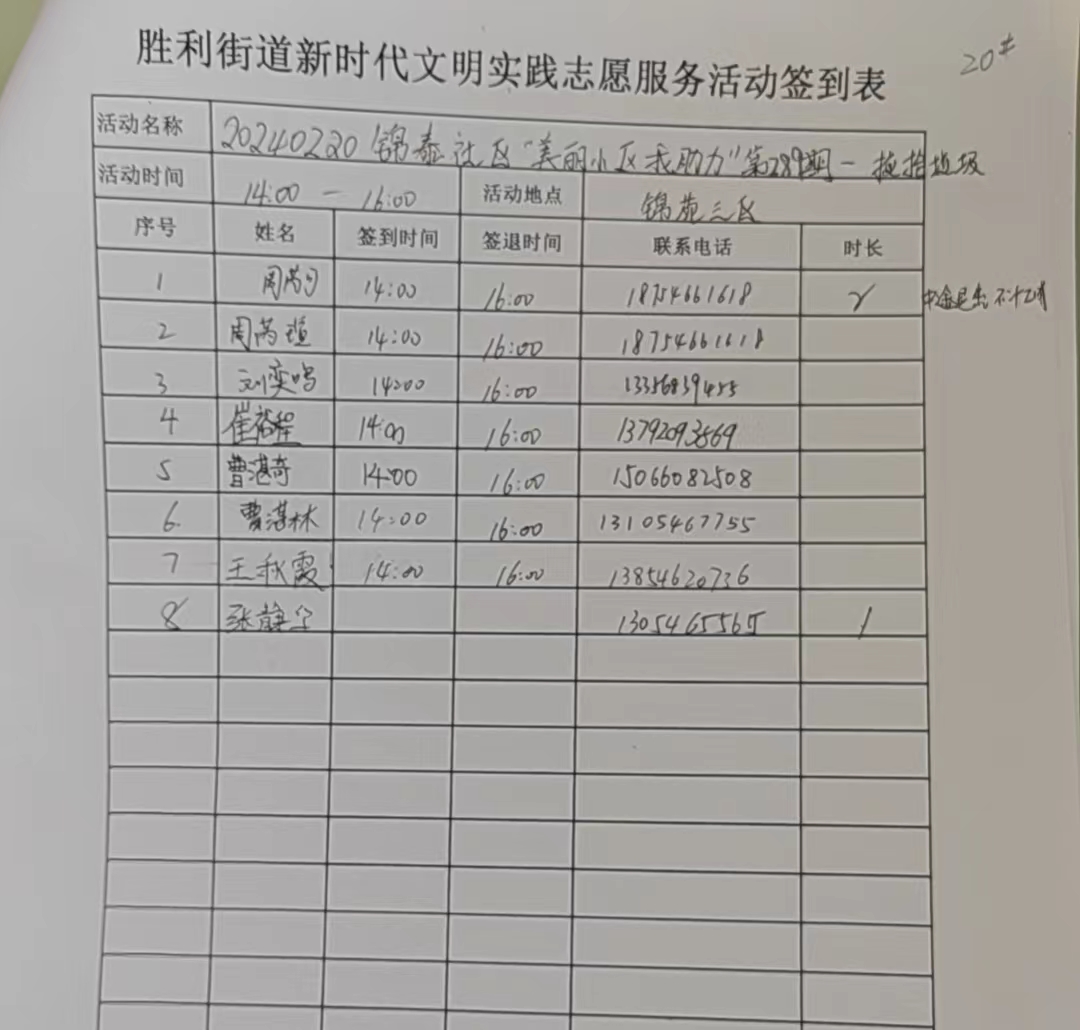 20#
胜利街道新时代文明实践志愿服务活动签到表
活动名称 20240220锦泰社区"美丽小区我助力"第289期一捡拾垃圾
活动时间 14:00 — 16:00 活动地点 锦苑三区
序号 姓名 签到时间 签退时间 联系电话 时长
1 周芮 14:00 16:00 18754661618 2 中途退出 不计
2 周芮 14:00 16:00 18754661618
3 刘奕鸣 14:00 16:00 13356839455
4 崔裕程 14:00 16:00 13792093869
5 曹湛奇 14:00 16:00 15066082508
6 曹湛林 14:00 16:00 13105467755
7 王秋霞 14:00 16:00 13854620736
8 张静 1305465565 1